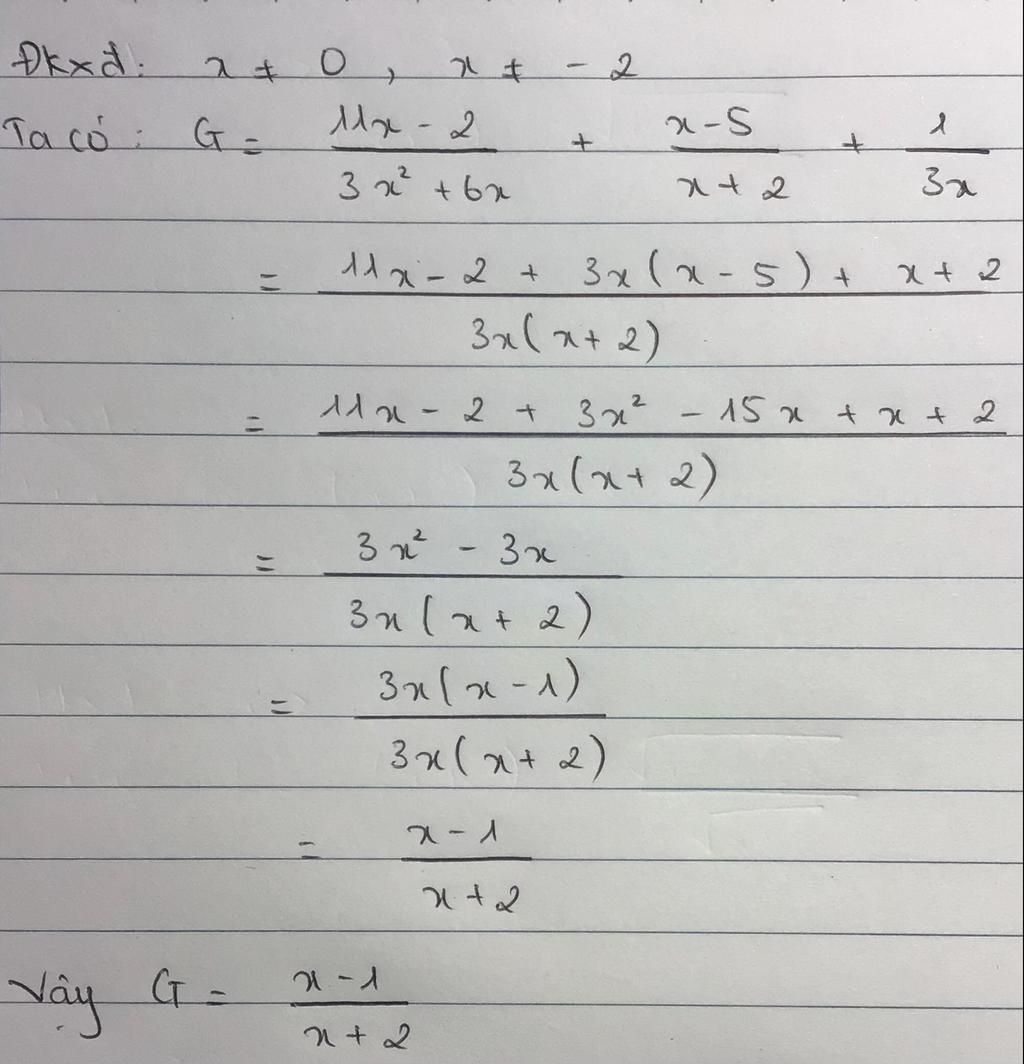 Đkxđ: x ≠ 0, x ≠ -2
Ta có: G = (11x - 2)/(3x² + 6x) + (x - 5)/(x + 2) + 1/(3x)
= (11x - 2 + 3x(x - 5) + x + 2)/(3x(x + 2))
= (11x - 2 + 3x² - 15x + x + 2)/(3x(x + 2))
= (3x² - 3x)/(3x(x + 2))
= (3x(x - 1))/(3x(x + 2))
= (x - 1)/(x + 2)
Vậy G = (x - 1)/(x + 2)